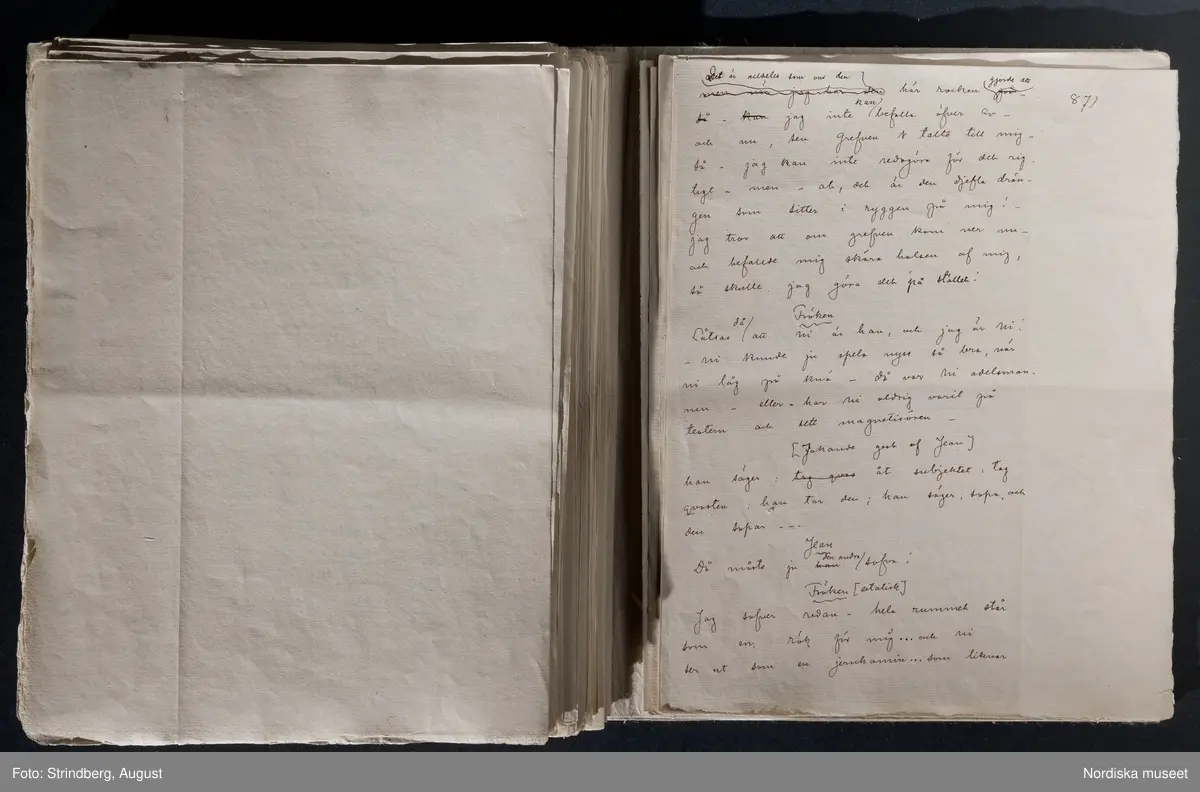 87)
Det är alldeles som om den
här rocken gjorde att
jag inte kan befalla öfver er –
och nu, sen grefven talte till mig –
så – jag kan inte redogöra för det rig-
tigt – men – ah, det är den djefla drän-
gen som sitter i ryggen på mig! –
jag tror att om grefven kom ner nu –
och befallde mig skära halsen af mig,
så skulle jag göra det på stället!
Fröken
Låtsas då att ni är han, och jag är Ni!
– ni kunde ju spela nyss så bra, när
ni låg på knä – då var Ni adelsman-
nen – eller – har Ni aldrig varit på
teatern och sett magnetisören –
[Jakande gest af Jean]
han säger: åt subjektet: tag
qvasten: han tar den; han säger: sopa, och
den sopar ---
Jean
Då måste ju den andra sofva!
Fröken [extatisk]
Jag sofver redan – hela rummet står
som en rök för mig... och ni
ser ut som en jernkamin... som liknar
Foto: Strindberg, August
Nordiska museet